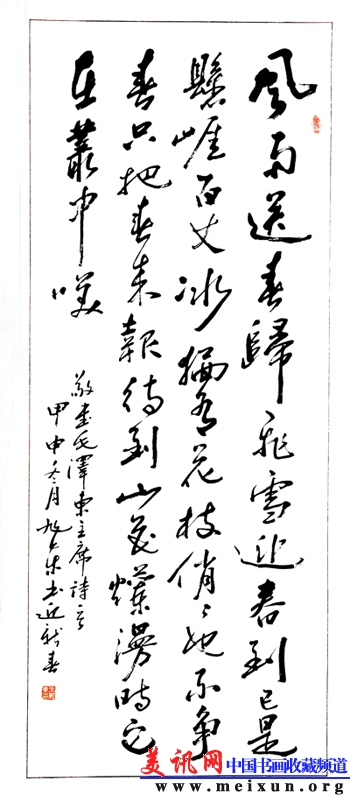 风雨送春歸飛雪迎春到已是
懸崖百丈冰猶有花枝俏〻也不争
春只把春来報待到山花爛漫時它
在叢中咲
敬書毛澤東主席詩
甲申冬月 书迎新春
美讯网 中国书画收藏频道
www.meixun.org